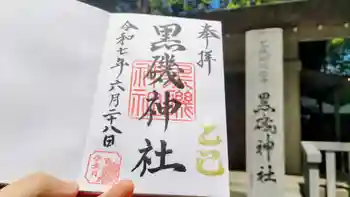 奉拝
黒磯神社
乙巳
令和七年六月二十八日
黒磯神社